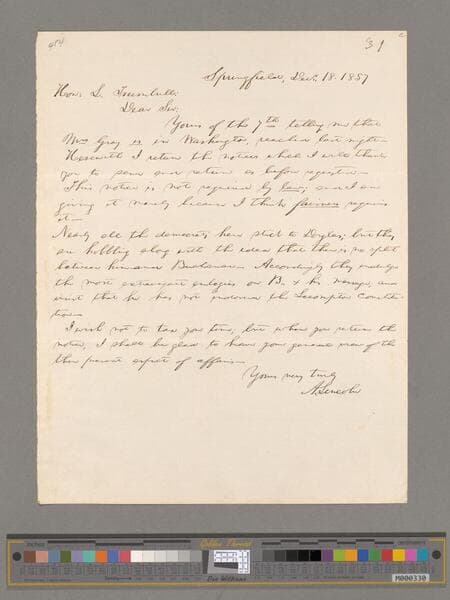 454
31
c
Springfield, Dec. 18. 1857
Hon: L. Trumbull:
Dear Sir:
Yours of the 7th telling me that
Mrs Gray is in Washington, reached last night—
Herewith I return the notices which I will thank
you to serve and return as before requested—
This notice is not required by law; and I am
giving it merely because I think fairness requires
it—
Nearly all the democrats here stick to Douglas; but they
are hobbling along with the idea that there is no split
between him and Buchanan. Accordingly they indulge
the most extravagant eulogies on B. & his message; and
insist that he has not indorsed the Lecompton Constitu-
tion—
I wish not to tax your time; but when you return the
notice, I shall be glad to have your general view of the
then present aspect of affairs—
Yours very truly
A. Lincoln
inches
centimeters
Golden Thread
Don Williams
M000330